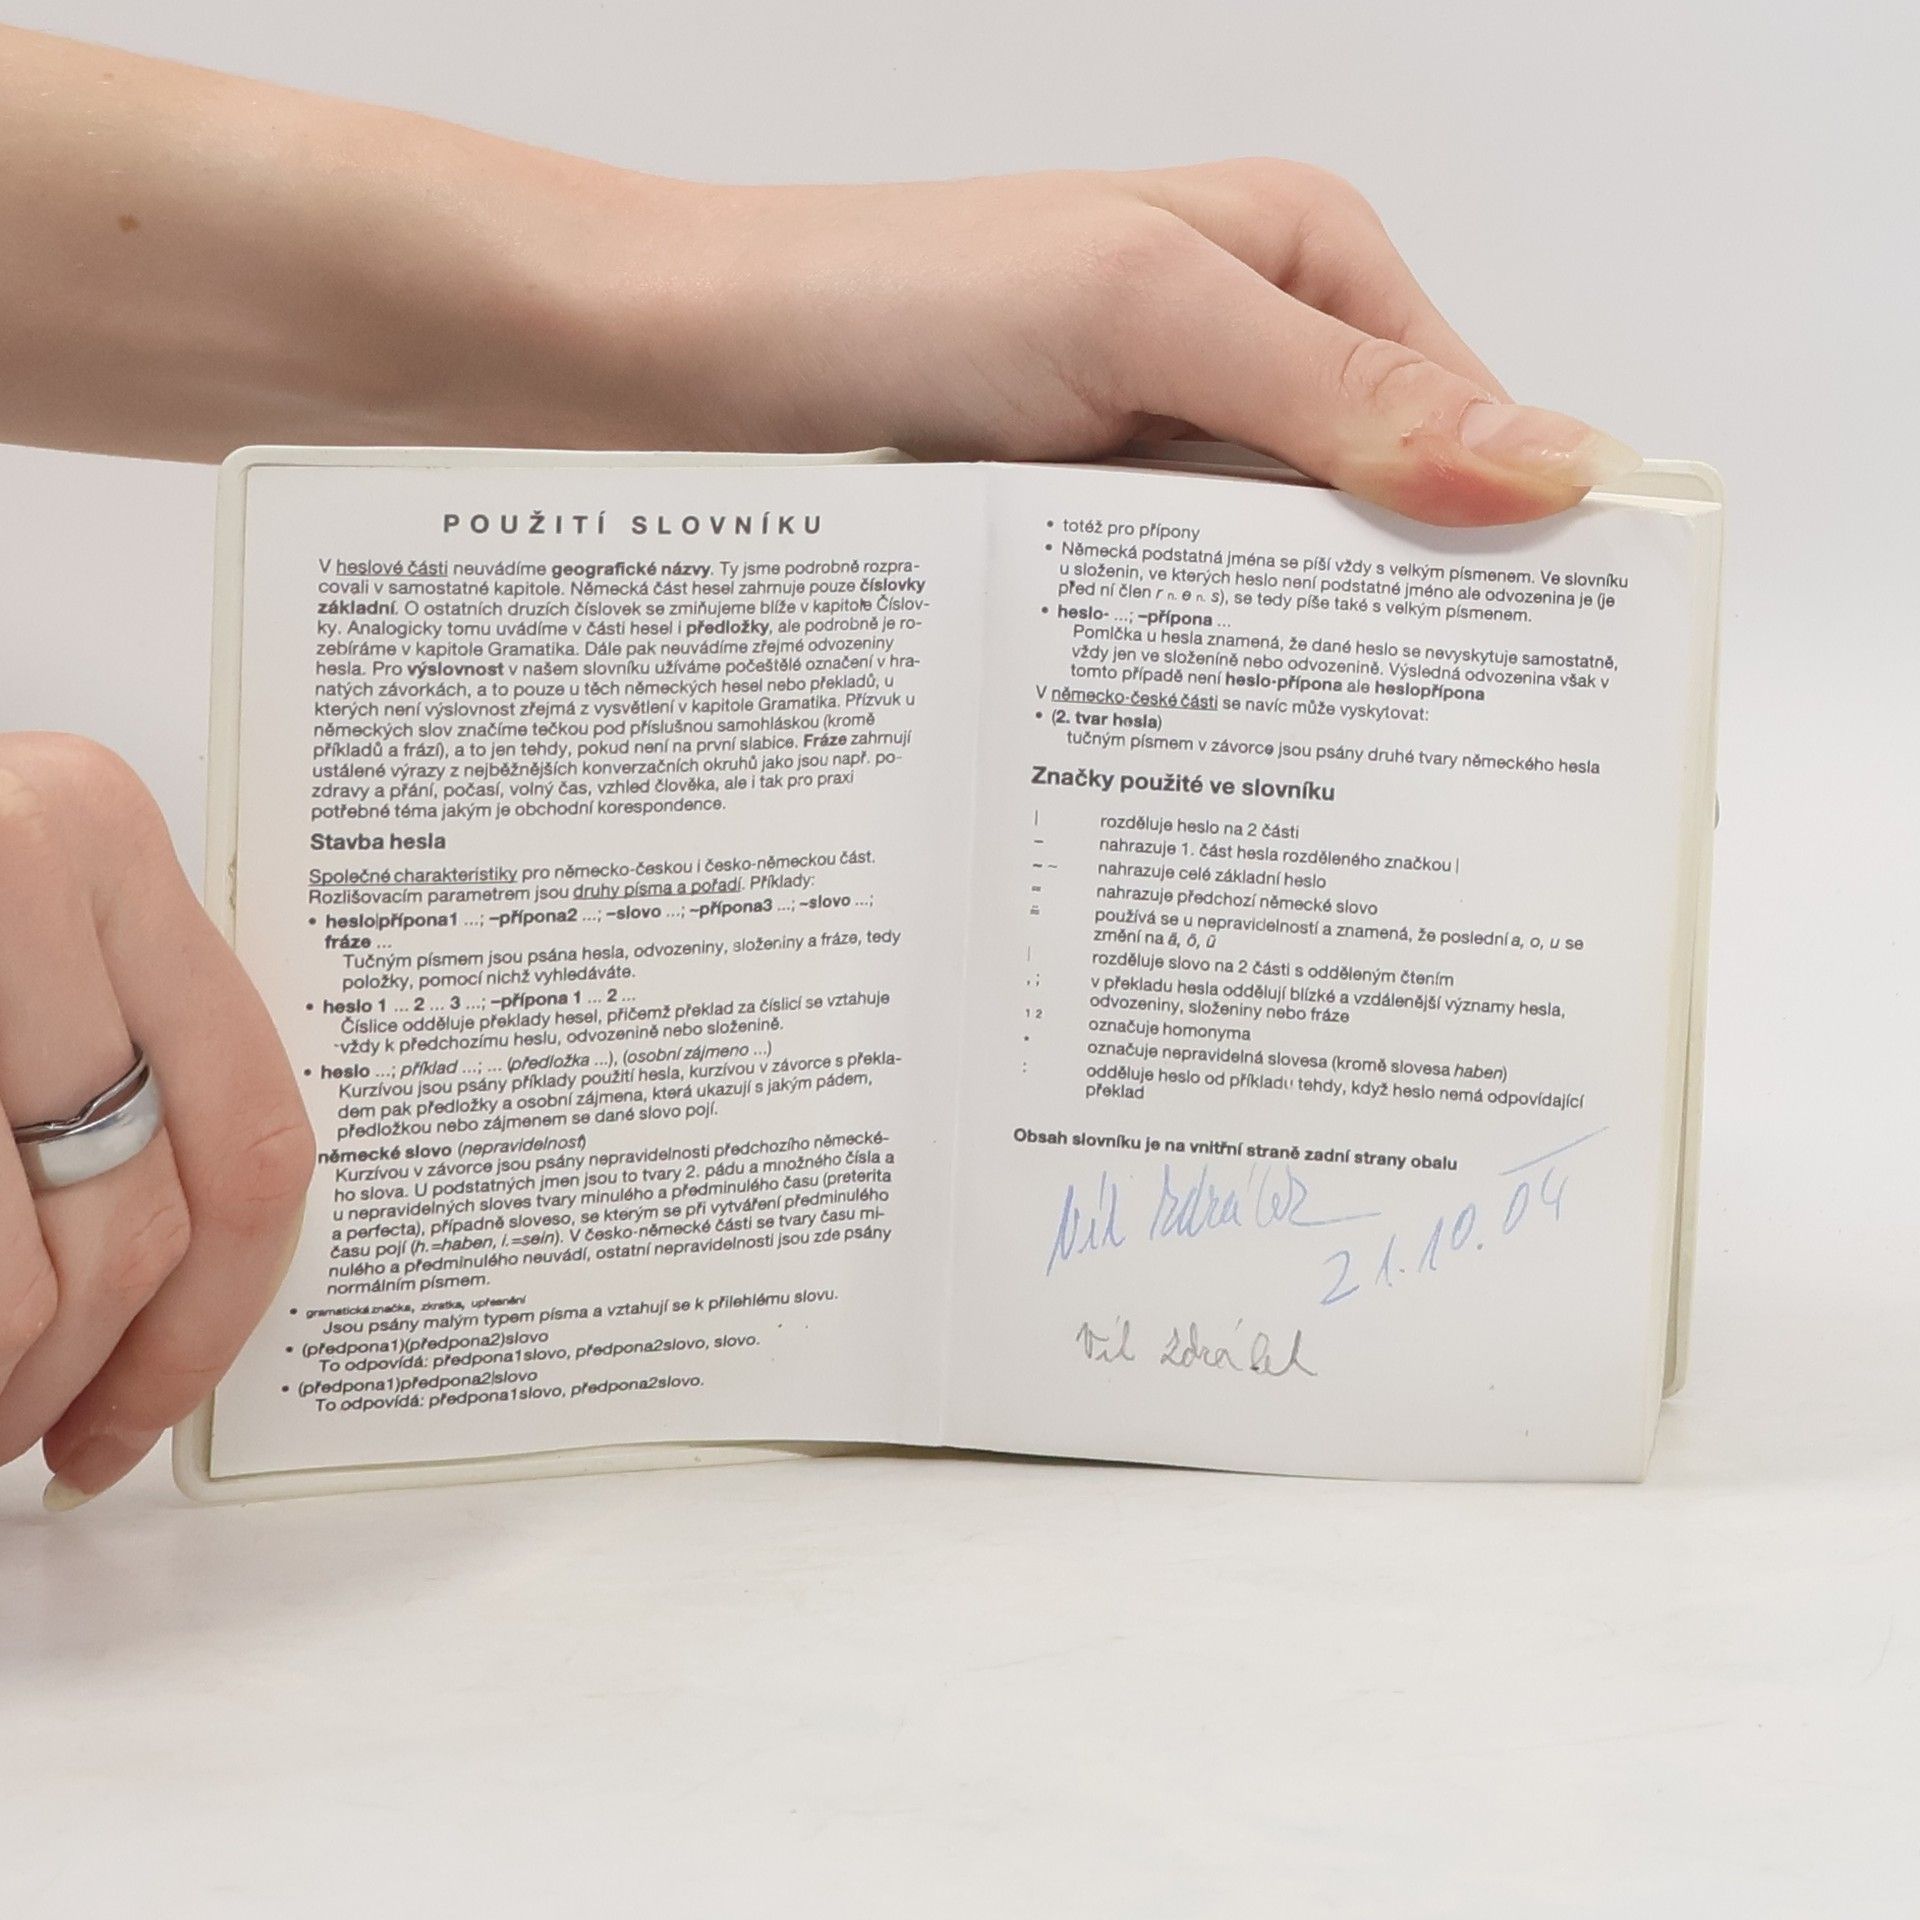 POUŽITÍ SLOVNÍKU
V heslové části neuvádíme geografické názvy. Ty jsme podrobně rozpra-
covali v samostatné kapitole. Německá část hesel zahrnuje pouze číslovky
základní. O ostatních druzích číslovek se zmiňujeme blíže v kapitole Číslov-
ky. Analogicky tomu uvádíme v části hesel i předložky, ale podrobně je ro-
zebíráme v kapitole Gramatika. Dále pak neuvádíme zřejmé odvozeniny
hesla. Pro výslovnost v našem slovníku užíváme počeštělé označení v hra-
natých závorkách, a to pouze u těch německých hesel nebo překladů, u
kterých není výslovnost zřejmá z vysvětlení v kapitole Gramatika. Přízvuk u
německých slov značíme tečkou pod příslušnou samohláskou (kromě
příkladů a frází), a to jen tehdy, pokud není na první slabice. Fráze zahrnují
ustálené výrazy z nejběžnějších konverzačních okruhů jako jsou např. po-
zdravy a přání, počasí, volný čas, vzhled člověka, ale i tak pro praxi
potřebné téma jakým je obchodní korespondence.
Stavba hesla
Společné charakteristiky pro německo-českou i česko-německou část.
Rozlišovacím parametrem jsou druhy písma a pořadí. Příklady:
• heslo|přípona1 ...; –přípona2 ...; –slovo ...; ~přípona3 ...; ~slovo ...;
fráze ...
Tučným písmem jsou psána hesla, odvozeniny, složeniny a fráze, tedy
položky, pomocí nichž vyhledáváte.
• heslo 1 ... 2 ... 3 ...; –přípona 1 ... 2 ...
Číslice odděluje překlady hesel, přičemž překlad za číslicí se vztahuje
vždy k předchozímu heslu, odvozenině nebo složenině.
• heslo ...; příklad ...; ... (předložka ...), (osobní zájmeno ...)
Kurzívou jsou psány příklady použití hesla, kurzívou v závorce s překla-
dem pak předložky a osobní zájmena, která ukazují s jakým pádem,
předložkou nebo zájmenem se dané slovo pojí.
německé slovo (nepravidelnost)
Kurzívou v závorce jsou psány nepravidelnosti předchozího německé-
ho slova. U podstatných jmen jsou to tvary 2. pádu a množného čísla a
u nepravidelných sloves tvary minulého a předminulého času (preterita
a perfecta), případně sloveso, se kterým se při vytváření předminulého
času pojí (h.=haben, i.=sein). V česko-německé části se tvary času mi-
nulého a předminulého neuvádí, ostatní nepravidelnosti jsou zde psány
normálním písmem.
• gramatická značka, zkratka, upřesnění
Jsou psány malým typem písma a vztahují se k přilehlému slovu.
• (předpona1)(předpona2)slovo
To odpovídá: předpona1slovo, předpona2slovo, slovo.
• (předpona1)předpona2|slovo
To odpovídá: předpona1slovo, předpona2slovo.
• totéž pro přípony
• Německá podstatná jména se píší vždy s velkým písmenem. Ve slovníku
u složenin, ve kterých heslo není podstatné jméno ale odvozenina je (je
před ní člen r n. e n. s), se tedy píše také s velkým písmenem.
• heslo- ...; –přípona ...
Pomlčka u hesla znamená, že dané heslo se nevyskytuje samostatně,
vždy jen ve složenině nebo odvozenině. Výsledná odvozenina však v
tomto případě není heslo-přípona ale heslopřípona
V německo-české části se navíc může vyskytovat:
• (2. tvar hesla)
tučným písmem v závorce jsou psány druhé tvary německého hesla
Značky použité ve slovníku
| rozděluje heslo na 2 části
– nahrazuje 1. část hesla rozděleného značkou |
~ ~ nahrazuje celé základní heslo
≈ nahrazuje předchozí německé slovo
používá se u nepravidelností a znamená, že poslední a, o, u se
změní na ä, ö, ü
| rozděluje slovo na 2 části s odděleným čtením
, ; v překladu hesla oddělují blízké a vzdálenější významy hesla,
odvozeniny, složeniny nebo fráze
1 2 označuje homonyma
• označuje nepravidelná slovesa (kromě slovesa haben)
: odděluje heslo od příkladu tehdy, když heslo nemá odpovídající
překlad
Obsah slovníku je na vnitřní straně zadní strany obalu
Vít Zdrálek
21.10.04
Vít Zdrálek